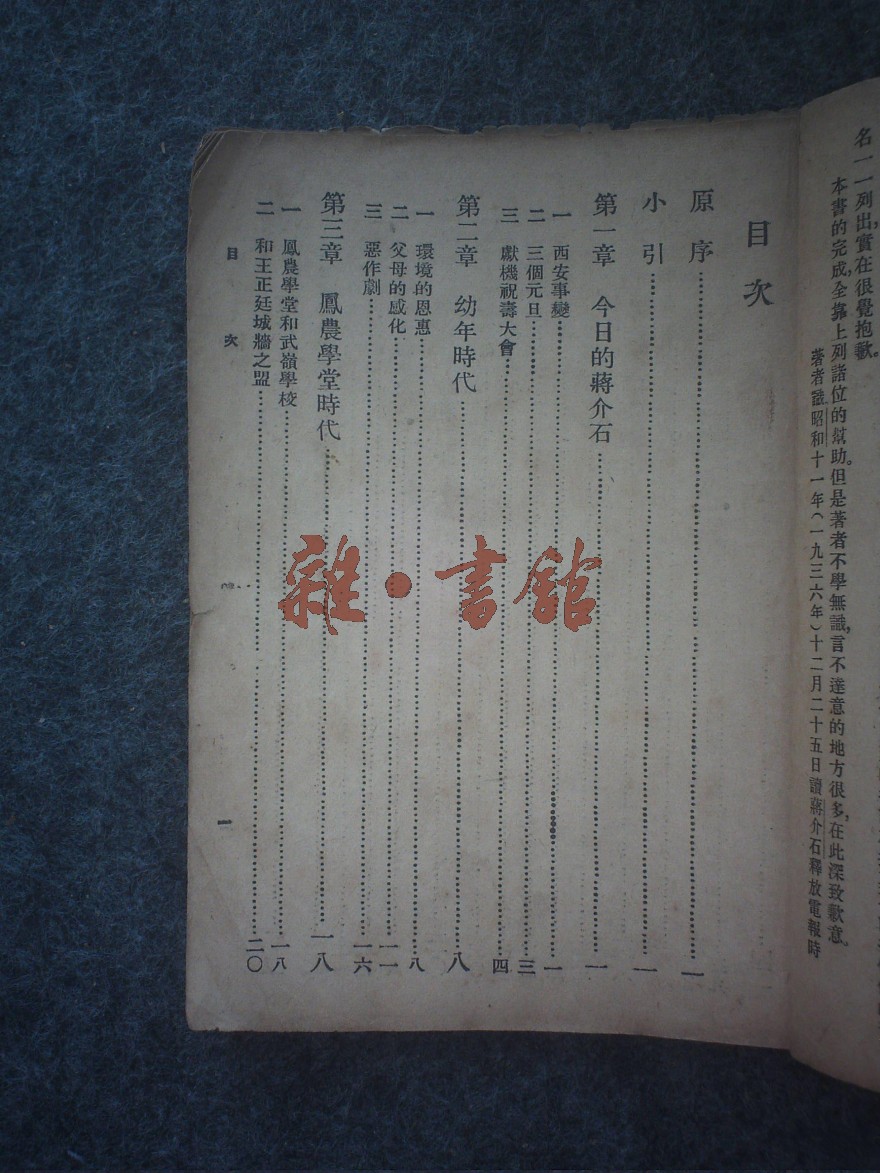 名一一列出,實在很覺抱歉。
本書的完成,全靠上列諸位的幫助。但是著者不學無識,言不達意的地方很多,在此深致歉意。
著者識昭和十一年(一九三六年)十二月二十五日讀蔣介石釋放電報時
目次
原序……一
小引……一
第一章 今日的蔣介石……一
一 西安事變……一
二 三個元旦……三
三 獻機祝壽大會……四
第二章 幼年時代……八
一 環境的恩惠……八
二 父母的感化……一一
三 惡作劇……一六
第三章 鳳農學堂時代……一八
一 鳳農學堂和武嶺學校……一八
二 和王正廷城牆之盟……二〇
目次
一
雜·書館